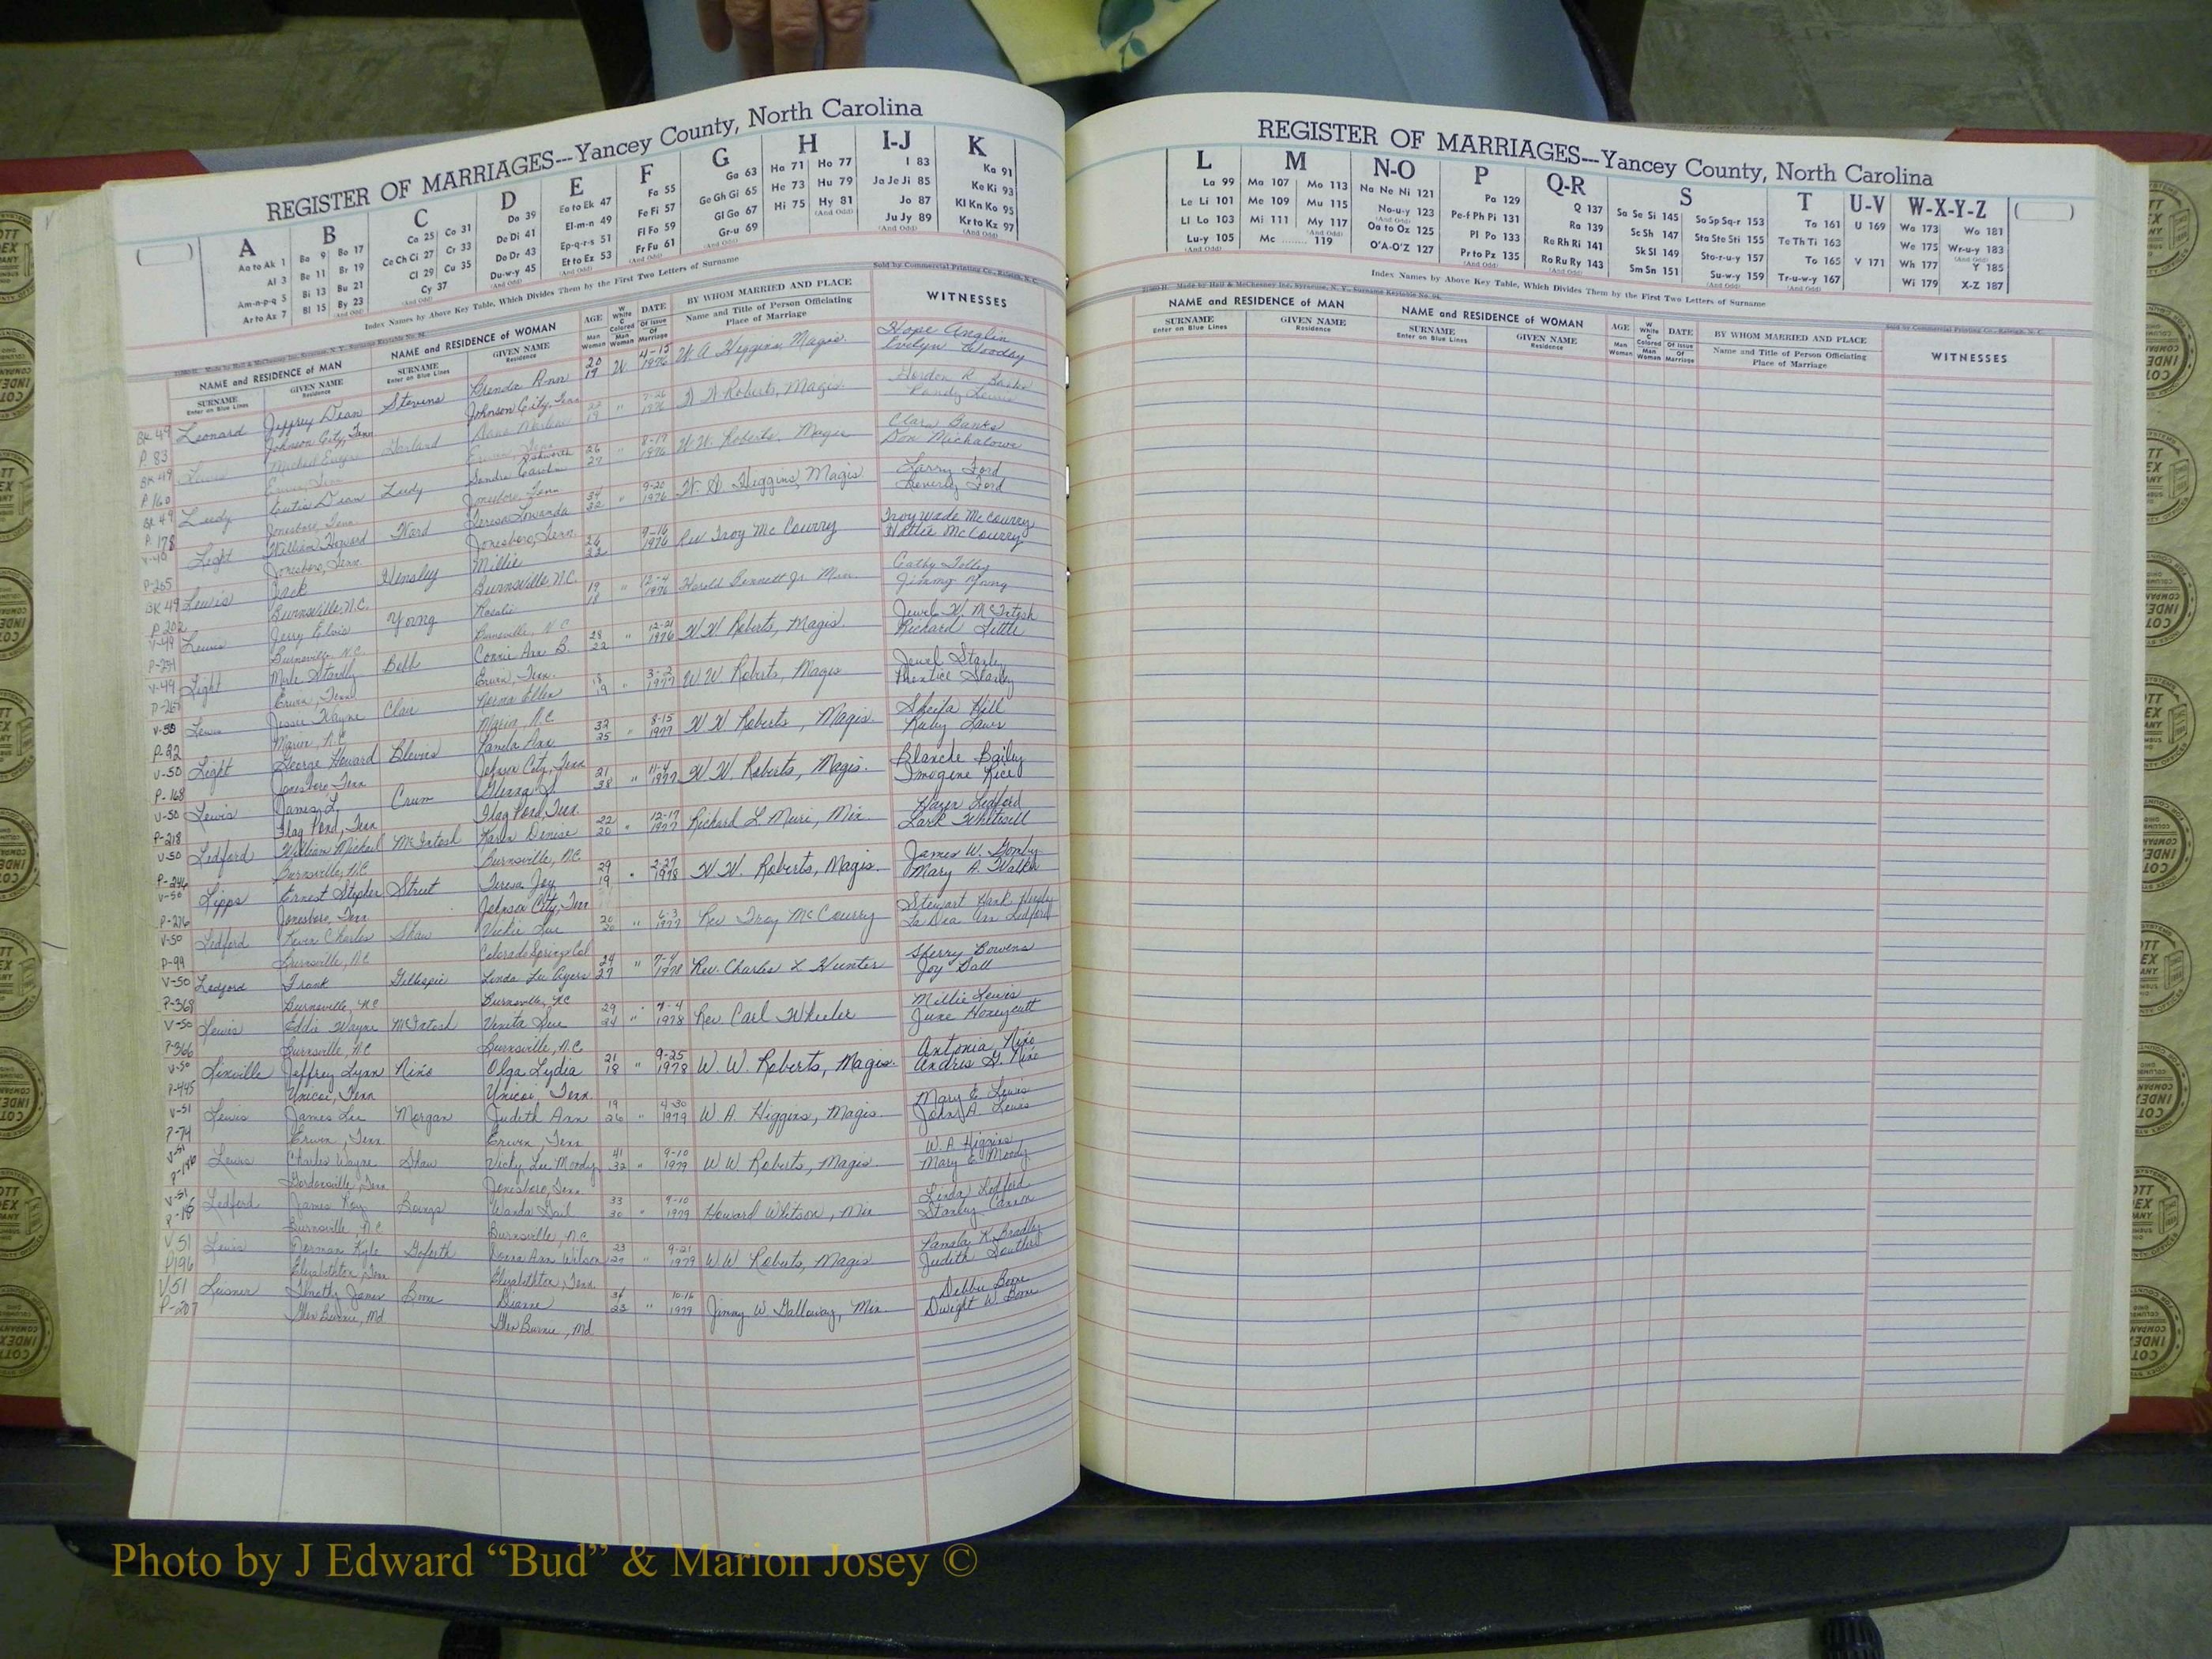 REGISTER OF MARRIAGES---Yancey County, North Carolina
A B C D E F G H I-J K
Aa to Ak 1 Ba 9 Bo 17 Ca 25 Co 31 Da 39 Ea to Ek 47 Fa 55 Ga 63 Ha 71 Ho 77 I 83 Ka 91
Al 3 Be 11 Br 19 Ce Ch Ci 27 Cr 33 De Di 41 El-m-n 49 Fe Fi 57 Ge Gh Gi 65 He 73 Hu 79 Ja Je Ji 85 Ke Ki 93
Am-n-p-q 5 Bi 13 Bu 21 Cl 29 Cu 35 Do Dr 43 Ep-q-r-s 51 Fl Fo 59 Gl Go 67 Hi 75 Hy 81 Jo 87 Kl Kn Ko 95
Ar to Az 7 Bl 15 By 23 Cy 37 Du-w-y 45 Et to Ez 53 Fr Fu 61 Gr-u 69 Ju Jy 89 Kr to Kz 97
Index Names by Above Key Table, Which Divides Them by the First Two Letters of Surname
Sold by Commercial Printing Co., Raleigh, N. C.
NAME and RESIDENCE of MAN NAME and RESIDENCE of WOMAN AGE W White C Colored DATE Of Issue Of Marriage BY WHOM MARRIED AND PLACE WITNESSES
SURNAME Enter on Blue Lines GIVEN NAME Residence SURNAME Enter on Blue Lines GIVEN NAME Residence Man Woman Man Woman Name and Title of Person Officiating Place of Marriage
BK 49 Leonard Jeffrey Dean Stevens Brenda Ann 20 19 W 4-15 1976 W. A. Higgins, Magis. Hope Anglin
P. 83 Johnson City, Tenn Johnson City, Tenn
BK 49 Michael Harland 1976 W. W. Roberts, Magis.
P 160
BK 49 Leedy Curtis Dean Ledy Sandra 26 27 " 8-17 1976 W. W. Roberts, Magis Clara Banks
P. 178 Jonesboro, Tenn Jonesboro, Tenn
Light William Howard Ward Teresa 34 22 " 9-20 1976 W. A. Higgins, Magis. Larry Ford
P-265 Jonesboro, Tenn. Jonesboro, Tenn. Beverly Ford
BK 49 Lewis Jack Hensley Millie 26 22 9-16 1976 Rev Troy McCourry Troy Wade McCourry
P 202 Burnsville, N.C. Burnsville, N.C. Hattie McCourry
V-49 Lewis Jerry Young Rosalie 19 18 " 12-4 1976 Harold Bennett Jr. Min. Cathy Tolley
Burnsville, N.C. Burnsville, N.C Jimmy Young
V-49 Light Bobb Connie Ann B. 28 22 " 12-21 1976 W W Roberts, Magis. Jewel W. McIntosh
Erwin, Tenn Erwin, Tenn. Richard Little
V-50 Lewis Jessie Wayne Clair Norma Ellen 19 " 3-2 1977 W W Roberts, Magis Jewel Stanley
P-92 Marion, N.C Marion, N.C Prentice Stanley
V-50 Light George Howard Blevins Pamela Ann 32 25 " 8-15 1977 W W Roberts, Magis. Sheila Hill
P-168 Jonesboro, Tenn Johnson City, Tenn Ruby Laws
V-50 Lewis James L. Crum Glenna 21 38 " 11-4 1977 W. W. Roberts, Magis. Blanche Bailey
P-218 Flag Pond, Tenn Flag Pond, Tenn. Imogene Rice
V-50 Ledford William Michael McIntosh Karen Denise 22 20 " 12-17 1977 Richard L Muri, Min. Hazen Ledford
P-246 Burnsville, N.C Burnsville, N.C Lark Whitwell
V-50 Lipps Ernest Stephen Street Teresa Joy 29 19 " 2-27 1978 W. W. Roberts, Magis. James W. Gouly
P-276 Jonesboro, Tenn Johnson City, Tenn Mary A. Walker
V-50 Ledford Kevin Charles Shaw Vickie Sue 20 20 " 6-3 1977 Rev Troy McCourry Stewart Hank Hensley
P-99 Burnsville, N.C Colorado Springs Col La Dea Ann Ledford
V-50 Ledford Frank Gillespie Linda Lee Ayers 24 27 " 7-4 1978 Rev. Charles L Hunter Sherry Bowens
P-369 Burnsville, N.C Burnsville, N.C Joy Ball
V-50 Lewis Eddie Wayne McIntosh Venita Sue 29 24 " 7-4 1978 Rev. Carl Wheeler Millie Lewis
P-366 Burnsville, N.C Burnsville, N.C June Honeycutt
V-50 Linville Jeffrey Lynn Nino Olga Lydia 21 18 " 9-25 1978 W. W. Roberts, Magis. Antonia Nino
P-445 Unicoi, Tenn Unicoi, Tenn. Andres G. Nino
V-51 Lewis James Lee Morgan Judith Ann 19 26 " 4-30 1979 W A. Higgins, Magis. Mary E. Lewis
P-74 Erwin, Tenn Erwin, Tenn John A. Lewis
V-51 Lewis Charles Wayne Shaw Vicky Lee Moody 41 32 " 9-10 1979 W W. Roberts, Magis. W. A Higgins
Gordonsville, Tenn Jonesboro, Tenn Mary E. Moody
V-51 Ledford James Roy Boings Wanda Gail 33 30 " 9-10 1979 Howard Whitson, Min Linda Ledford
Burnsville, N.C Burnsville, N.C Stanley Cannon
V 51 Lewis Norman Kyle Goforth Donna Ann Wilson 23 27 " 9-21 1979 W W Roberts, Magis Pamela K. Bradley
P196 Elizabethton, Tenn Elizabethton, Tenn Judith Souther
V 51 Leisner Timothy James Boone Dianne 36 23 " 10-16 1979 Jimmy W Galloway, Min. Debbie Boone
P-207 Glen Burnie, Md Glen Burnie, Md Dwight W. Boone
REGISTER OF MARRIAGES---Yancey County, North Carolina
L M N-O P Q-R S T U-V W-X-Y-Z
La 99 Ma 107 Mo 113 Na Ne Ni 121 Pa 129 Q 137 Sa Se Si 145 So Sp Sq-r 153 Ta 161 U 169 Wa 173 Wo 181
Le Li 101 Me 109 Mu 115 No-u-y 123 Pe-f Ph Pi 131 Ra 139 Sc Sh 147 Sta Ste Sti 155 Te Th Ti 163 We 175 Wr-u-y 183
Ll Lo 103 Mi 111 My 117 Oa to Oz 125 Pl Po 133 Re Rh Ri 141 Sk Sl 149 Sto-r-u-y 157 To 165 V 171 Wh 177 Y 185
Lu-y 105 Mc ........ 119 O'A-O'Z 127 Pr to Pz 135 Ro Ru Ry 143 Sm Sn 151 Su-w-y 159 Tr-u-w-y 167 Wi 179 X-Z 187
Index Names by Above Key Table, Which Divides Them by the First Two Letters of Surname
NAME and RESIDENCE of MAN NAME and RESIDENCE of WOMAN AGE W White C Colored DATE Of Issue Of Marriage BY WHOM MARRIED AND PLACE WITNESSES
SURNAME Enter on Blue Lines GIVEN NAME Residence SURNAME Enter on Blue Lines GIVEN NAME Residence Man Woman Man Woman Name and Title of Person Officiating Place of Marriage
Photo by J Edward “Bud” & Marion Josey ©